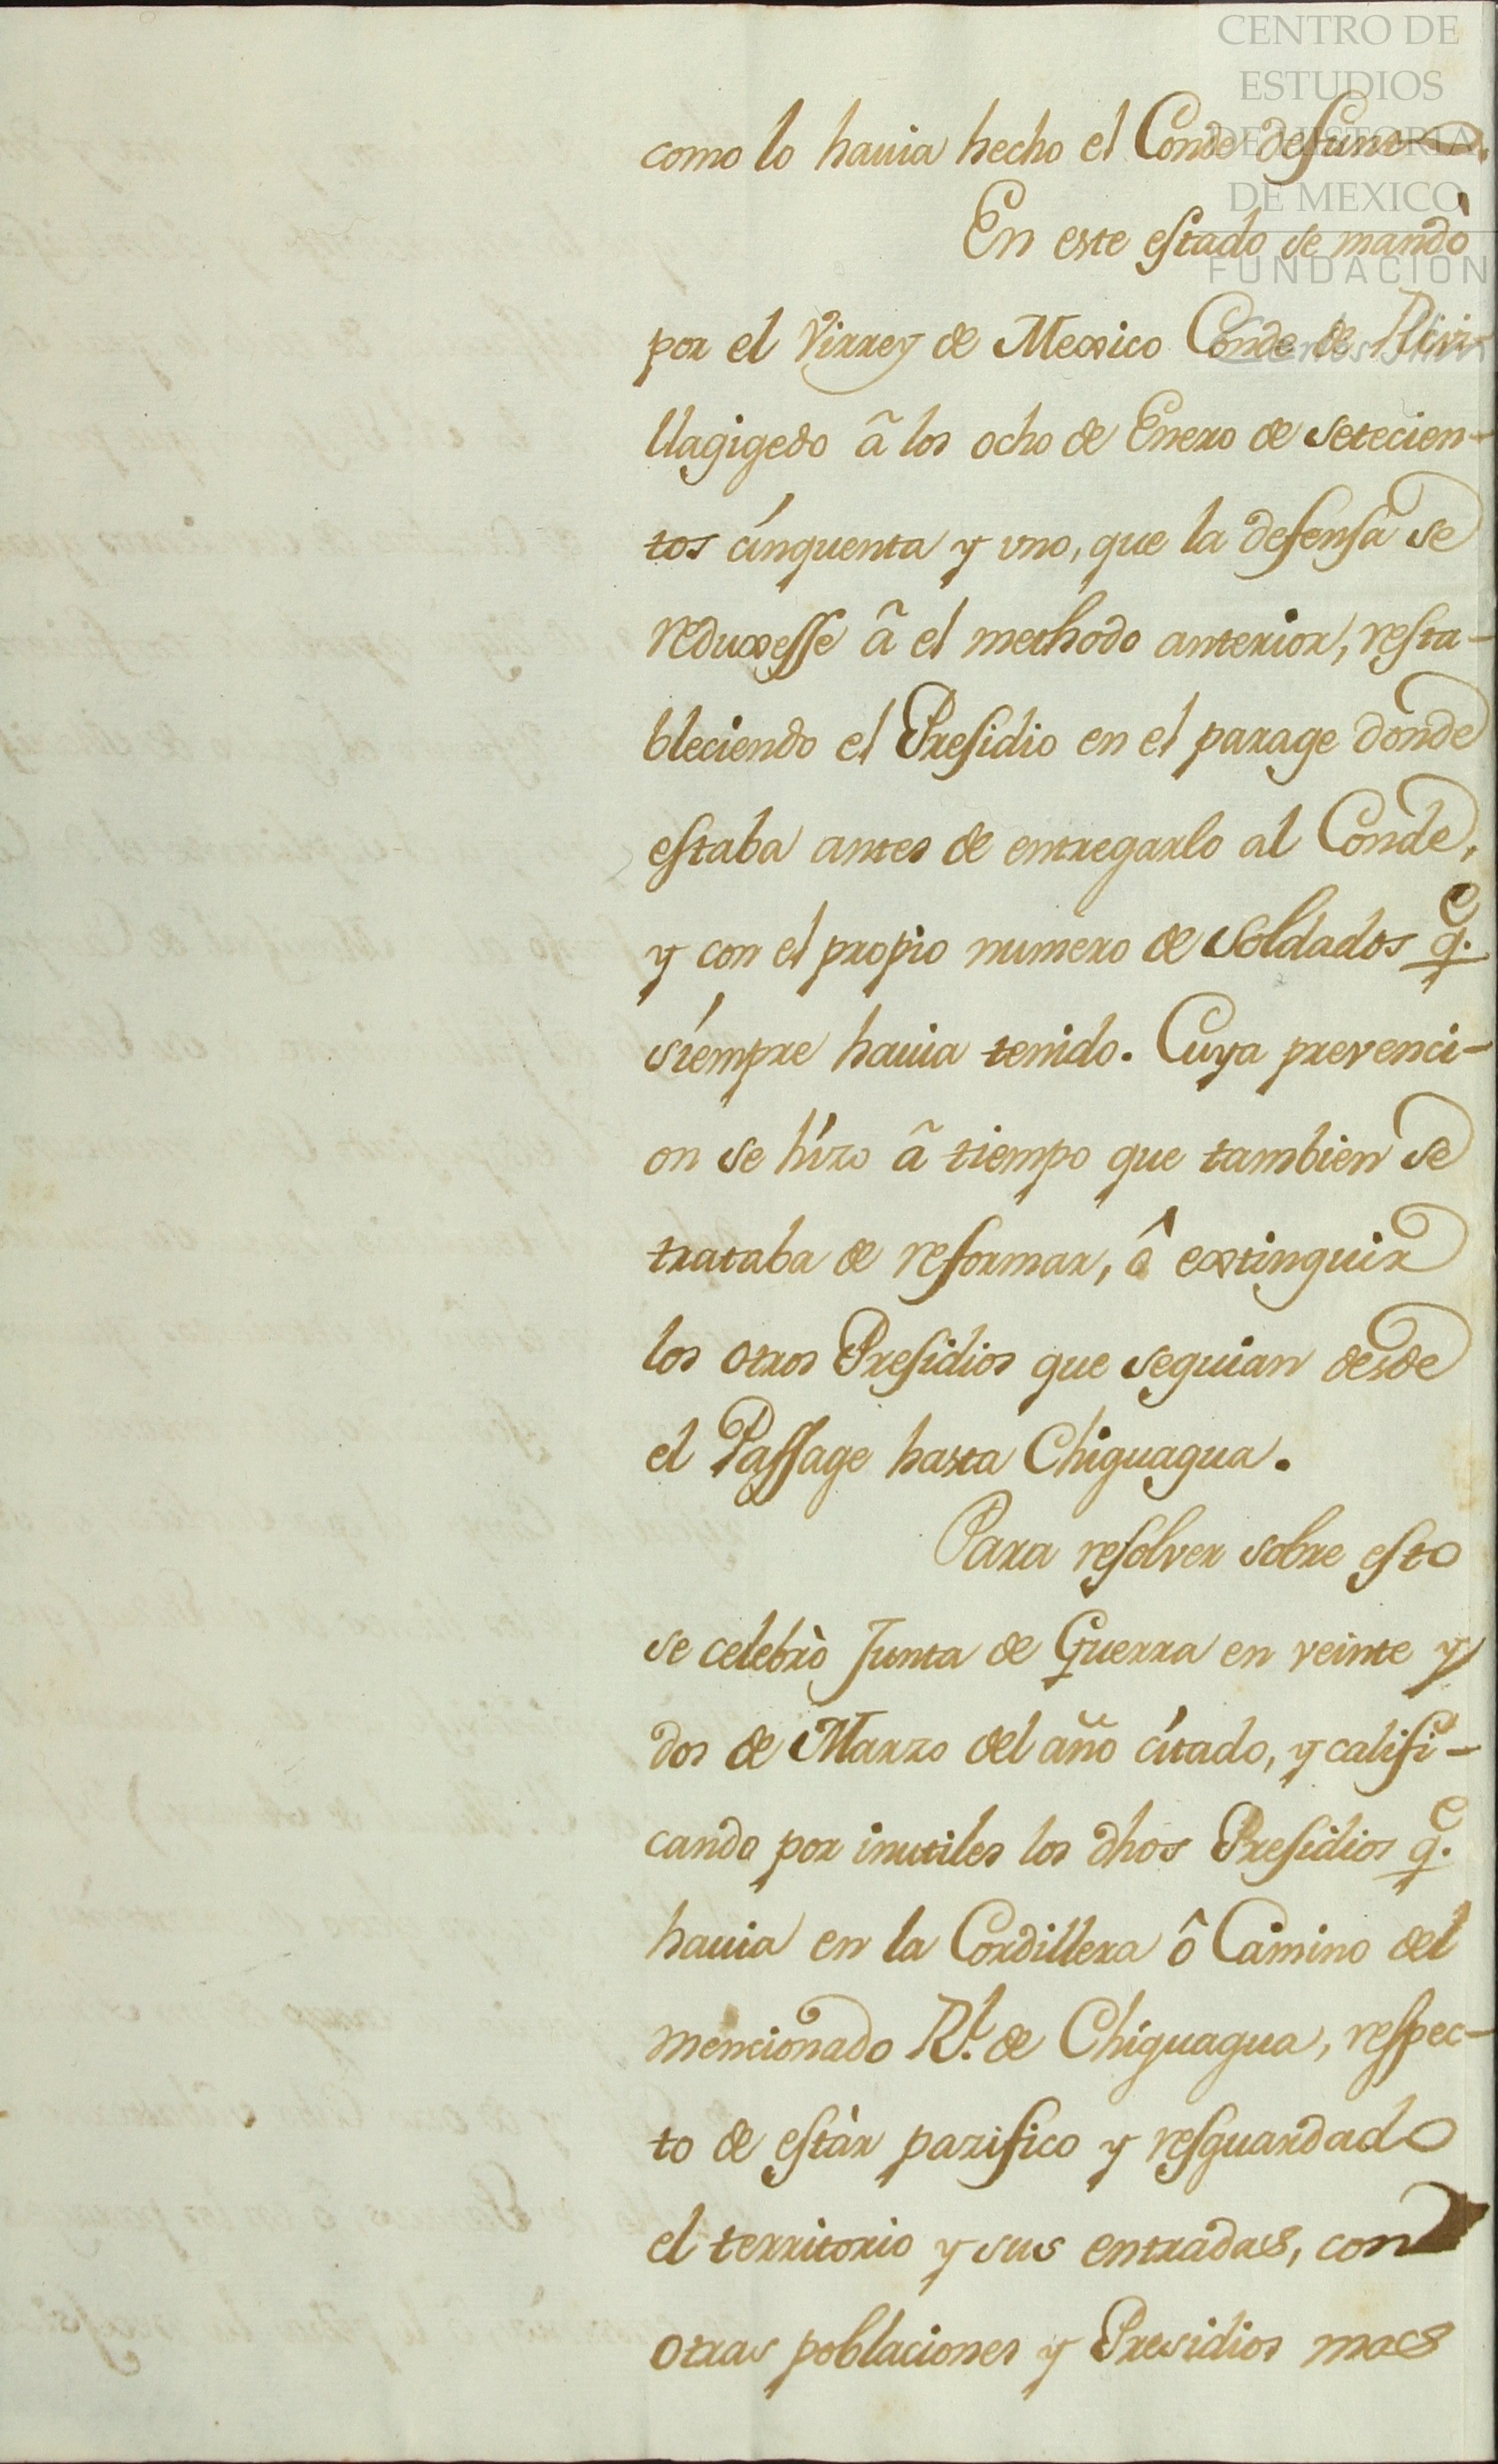 CENTRO DE
ESTUDIOS
DE HISTORIA
DE MEXICO
FUNDACIÓN
como lo hauia hecho el Conde defunto.
En este estado se mandò
por el Virrey de Mexico Conde de Rivi-
llagigedo â los ocho de Enero de setecien-
tos cinquenta y vno, que la defensa se
reduxesse â el methodo anterior, resta-
bleciendo el Presidio en el parage donde
estaba antes de entregarlo al Conde,
y con el propio numero de soldados q.e
siempre hauia tenido. Cuya prevenci-
on se hizo â tiempo que tambien se
trataba de reformar, ô extinguir
los otros Presidios que seguian desde
el Passage hasta Chiguagua.
Para resolver sobre esto
se celebrò Junta de Guerra en veinte y
dos de Marzo del año citado, y califi-
cando por inutiles los dhos Presidios q.e
hauia en la Cordillera ô Camino del
mencionado R.l de Chiguagua, respec-
to de estàr pazifico y resguardado
el territorio y sus entradas, con
otras poblaciones y Presidios mas